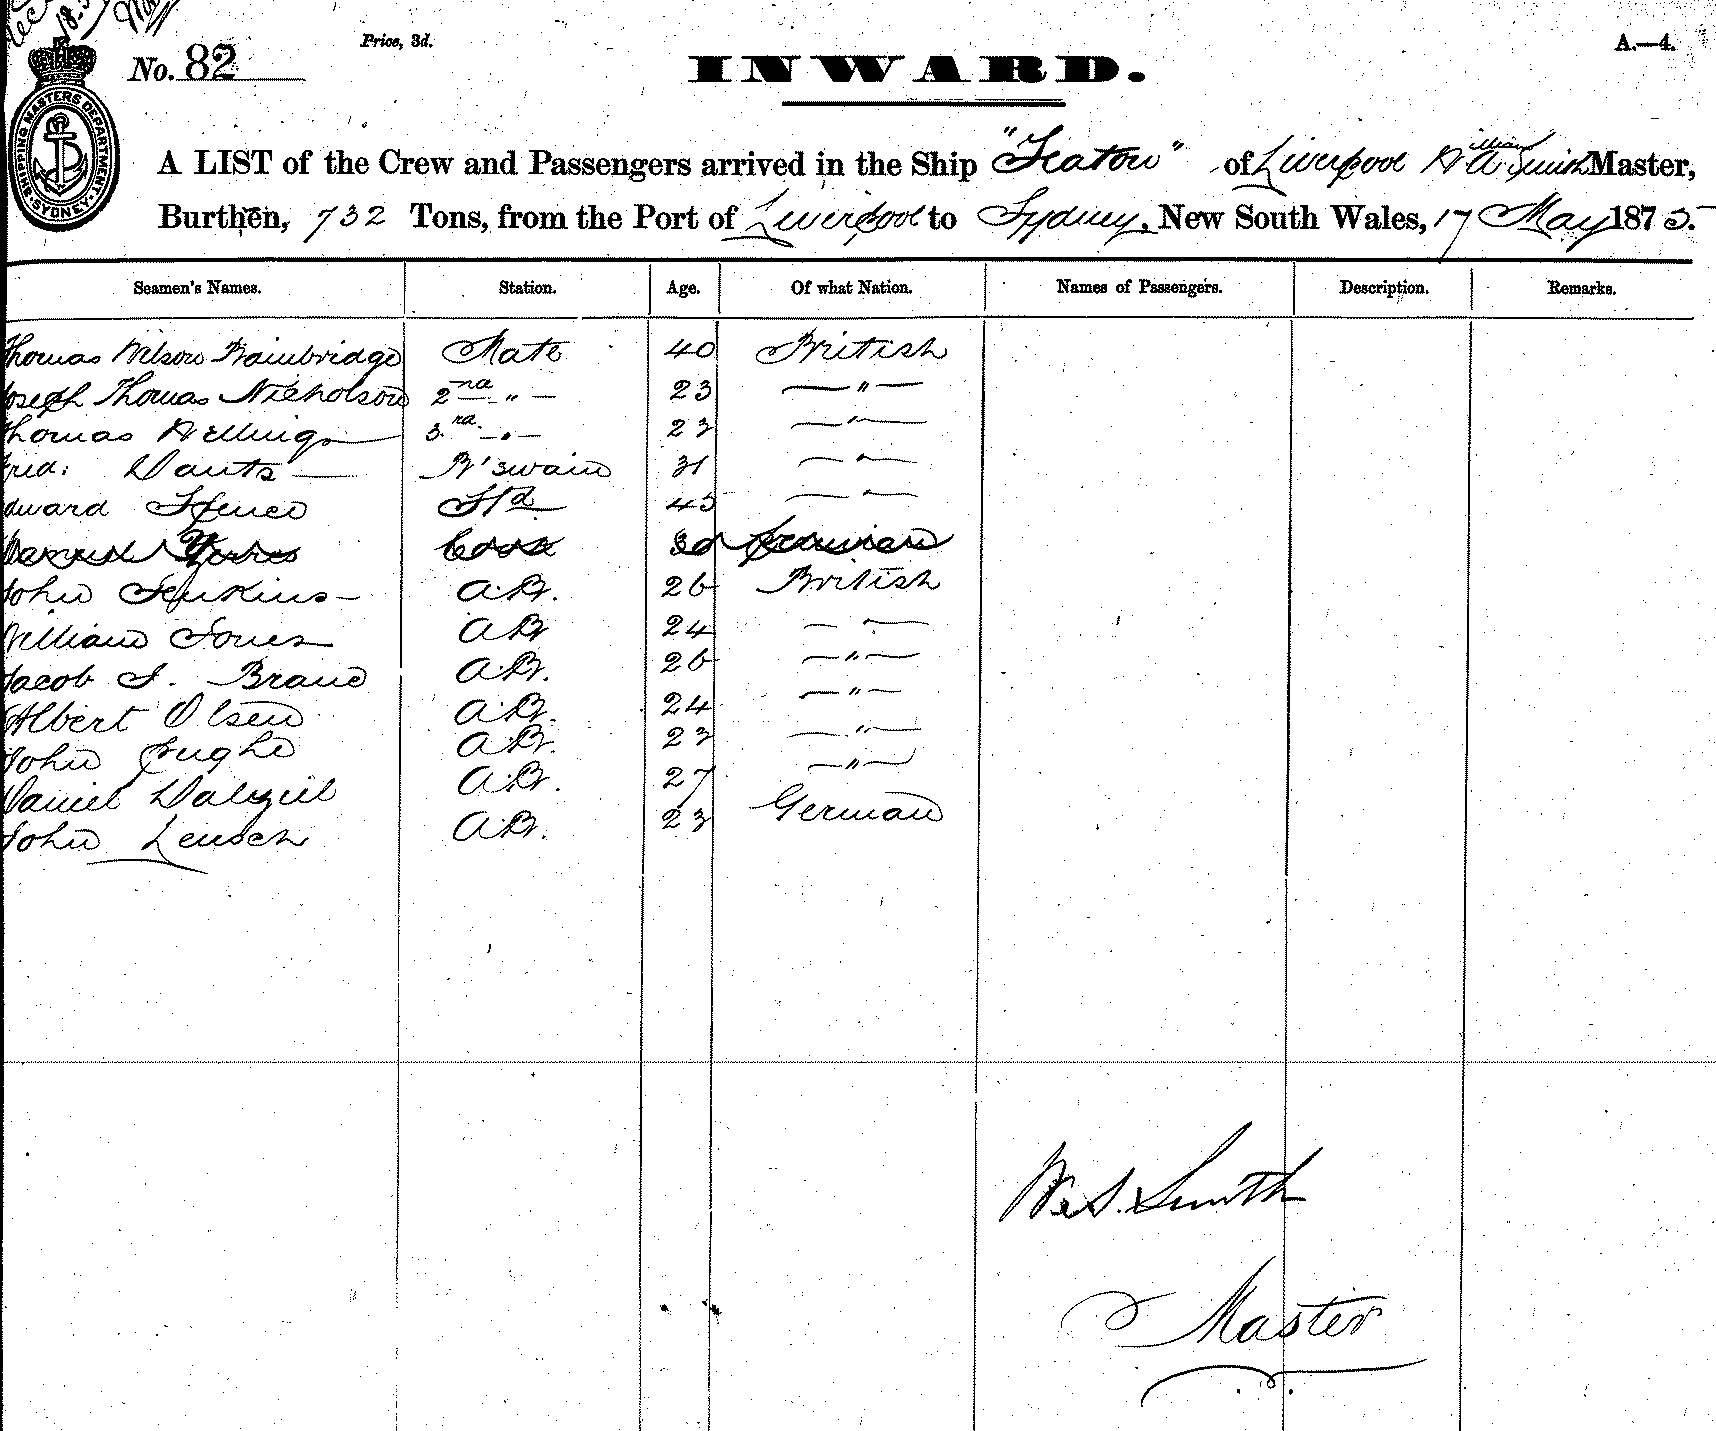 No. 82
Price, 3d.
A.—4.
INWARD.
SHIPPING MASTERS DEPARTMENT SYDNEY
A LIST of the Crew and Passengers arrived in the Ship "Seaton" of Liverpool William Smith Master,
Burthen, 732 Tons, from the Port of Liverpool to Sydney, New South Wales, 17 May 1875.
Seamen's Names. Station. Age. Of what Nation. Names of Passengers. Description. Remarks.
Thomas Wilson Bainbridge Mate 40 British
Joseph Thomas Nicholson 2nd " 23 "
Thomas Wellings 3rd " 23 "
Fred: Dants B'swain 31 "
Edward Spence Std 45 "
Cook 30
John Jenkins A.B. 26 British
William Jones A.B 24 "
Jacob J. Brand A.B. 26 "
Albert Olsen A.B. 24 "
John A.B. 23 "
Daniel Dalziel A.B. 27 "
John Leusch A.B. 23 German
Wm S. Smith
Master